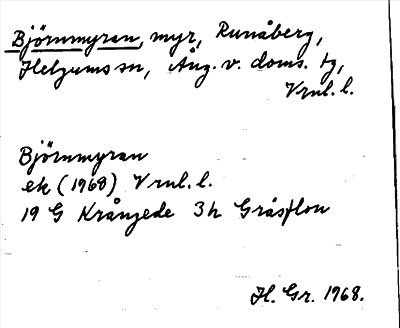 Björnmyran, myr, Runåberg,
Helgums sn, Ång. v. doms. tg,
Vrnl. l.
Björnmyran
ek (1968) Vrnl. l.
19 G Krångede 3h Gråsjlon
H. Gr. 1968.